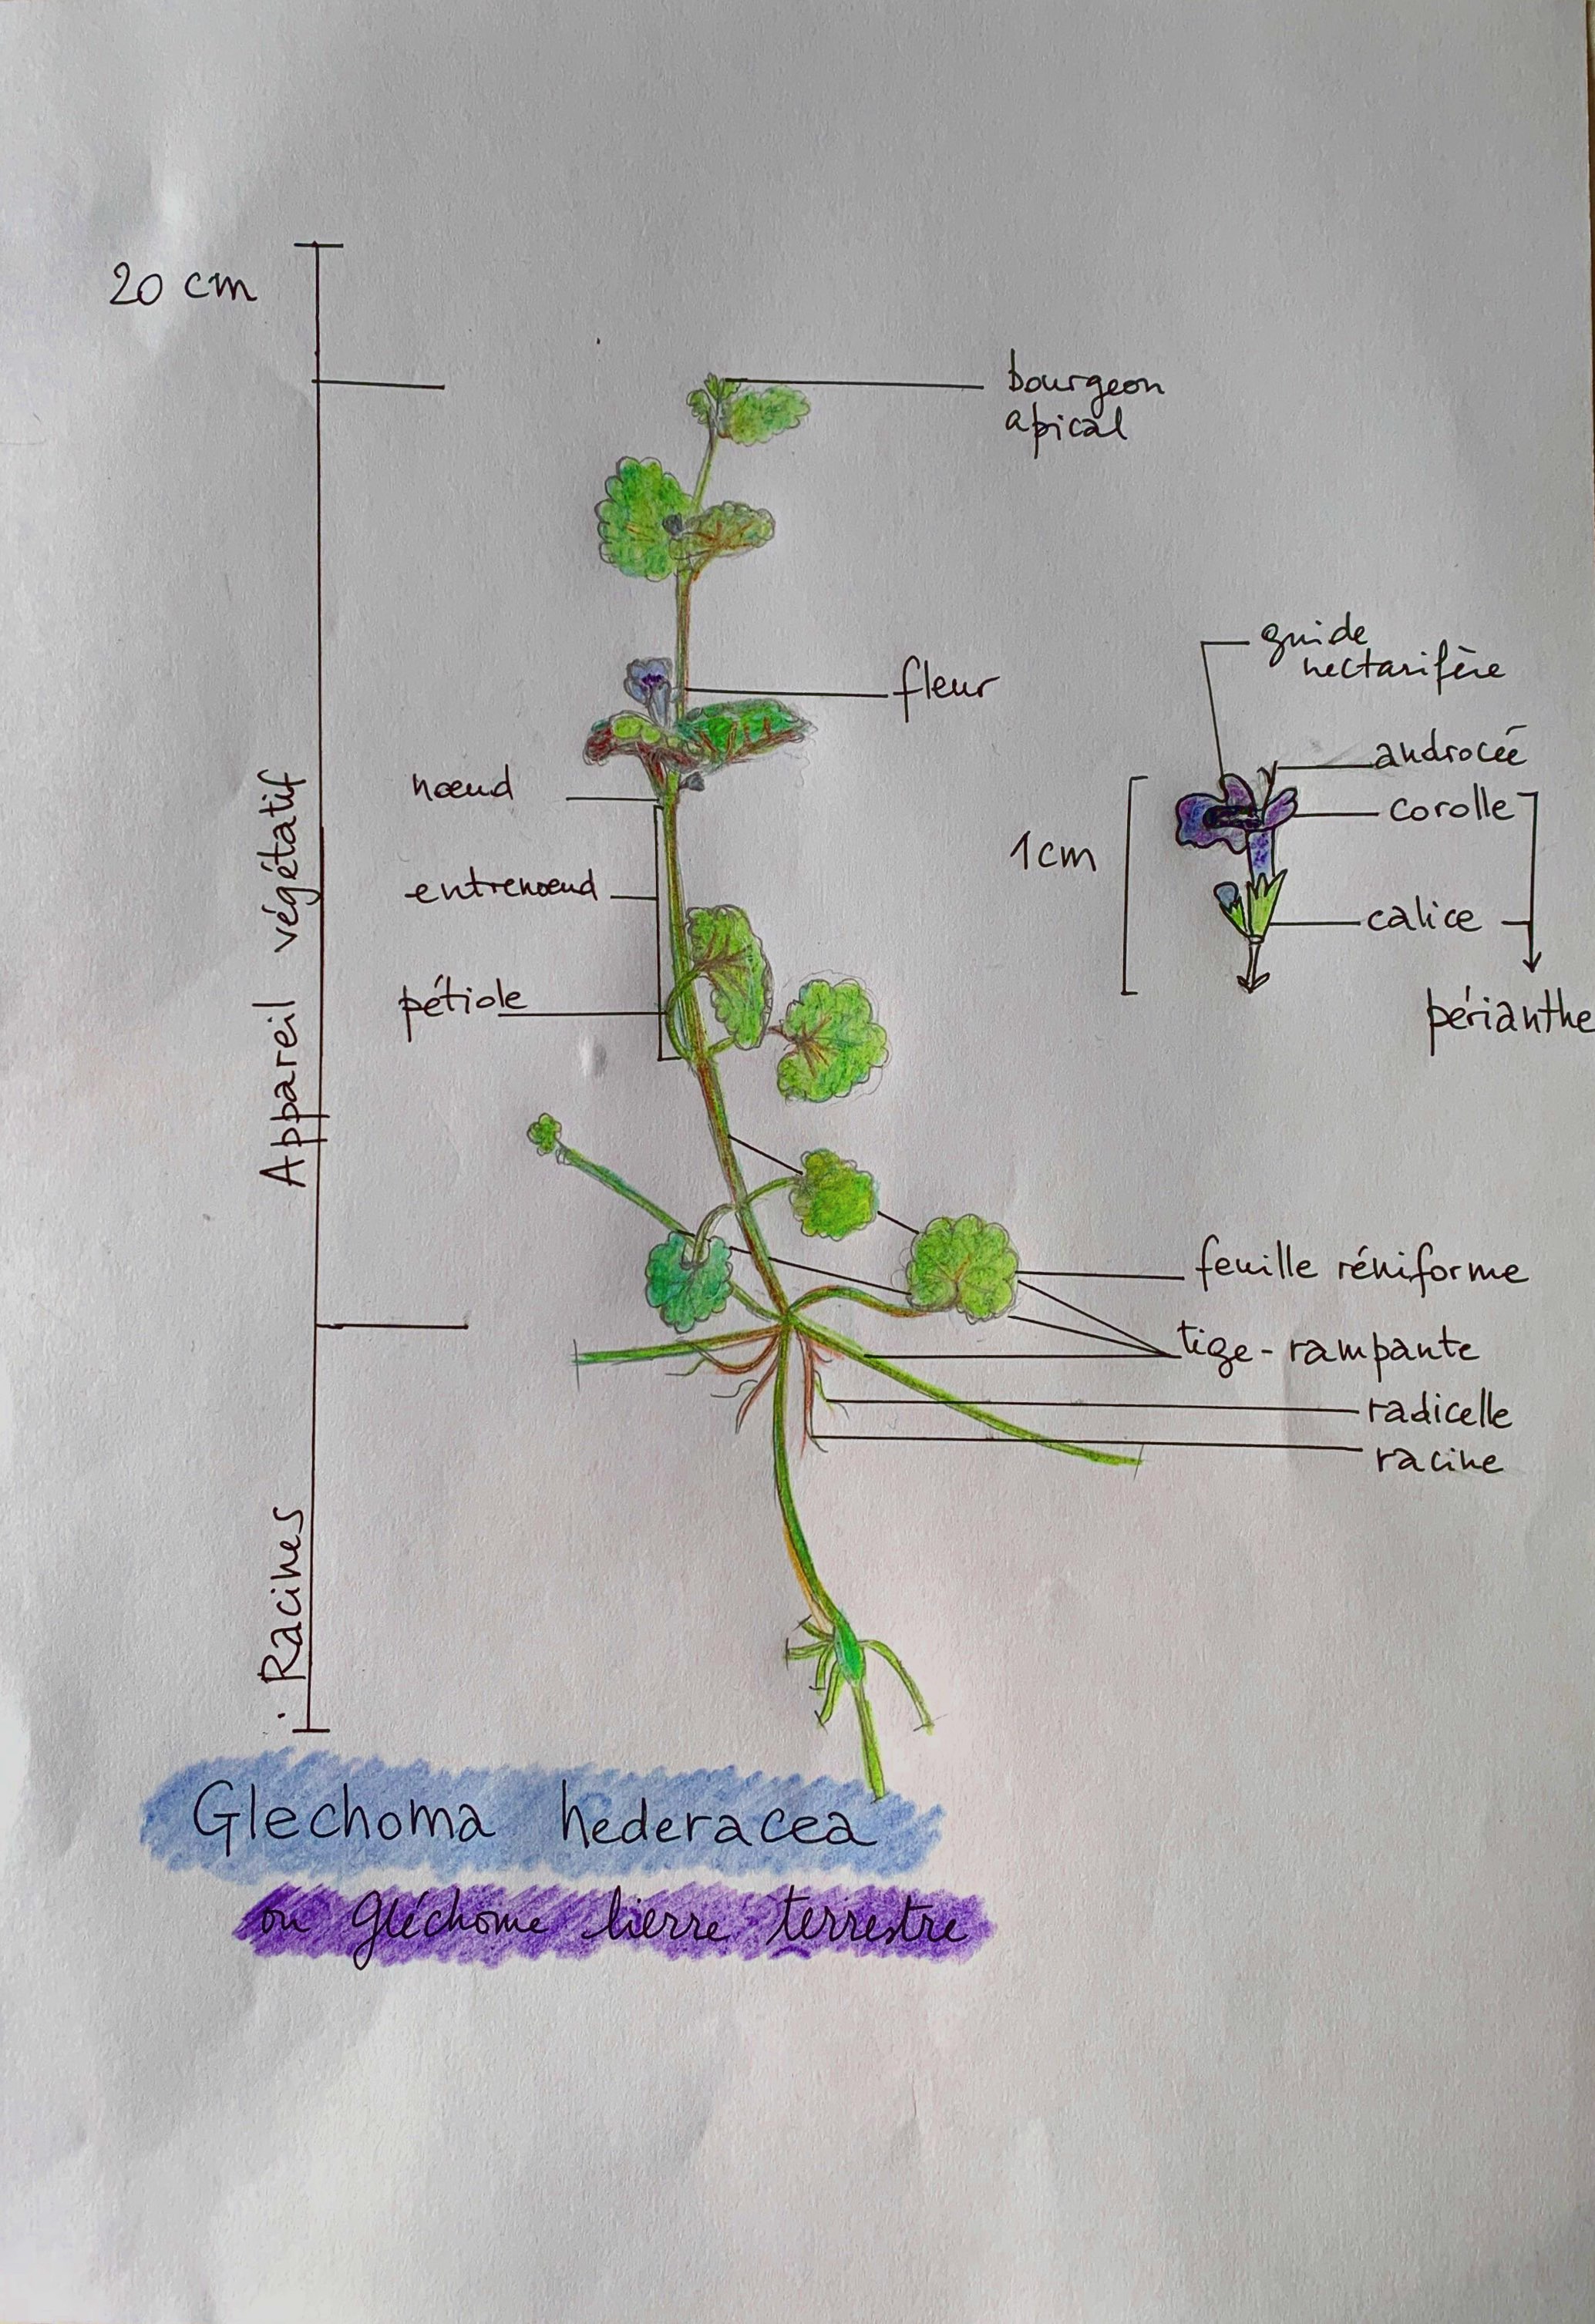 20 cm
bourgeon
apical
guide
nectarifère
fleur
androcée
nœud
corolle
1cm
entrenœud
calice
pétiole
périanthe
Appareil végétatif
feuille réniforme
tige-rampante
radicelle
racine
Racines
Glechoma hederacea
ou gléchome lierre terrestre